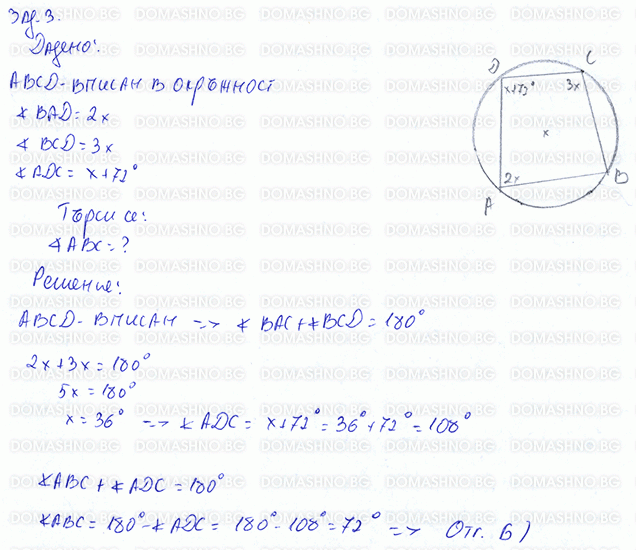 Зад. 3.
Дадено:
ABCD - ВПИСАН В ОКРЪЖНОСТ
∢ BAD = 2x
∢ BCD = 3x
∢ ADC = x+72°
Търси се:
∢ ABC = ?
D
C
x+72°
3x
x
2x
A
B
Решение:
ABCD - ВПИСАН => ∢ BAC + ∢BCD = 180°
2x + 3x = 180°
5x = 180°
x = 36° => ∢ ADC = x+72° = 36° + 72° = 108°
∢ABC + ∢ADC = 180°
∢ABC = 180° - ∢ADC = 180° - 108° = 72° => Отг. Б)
DOMASHNO.BG